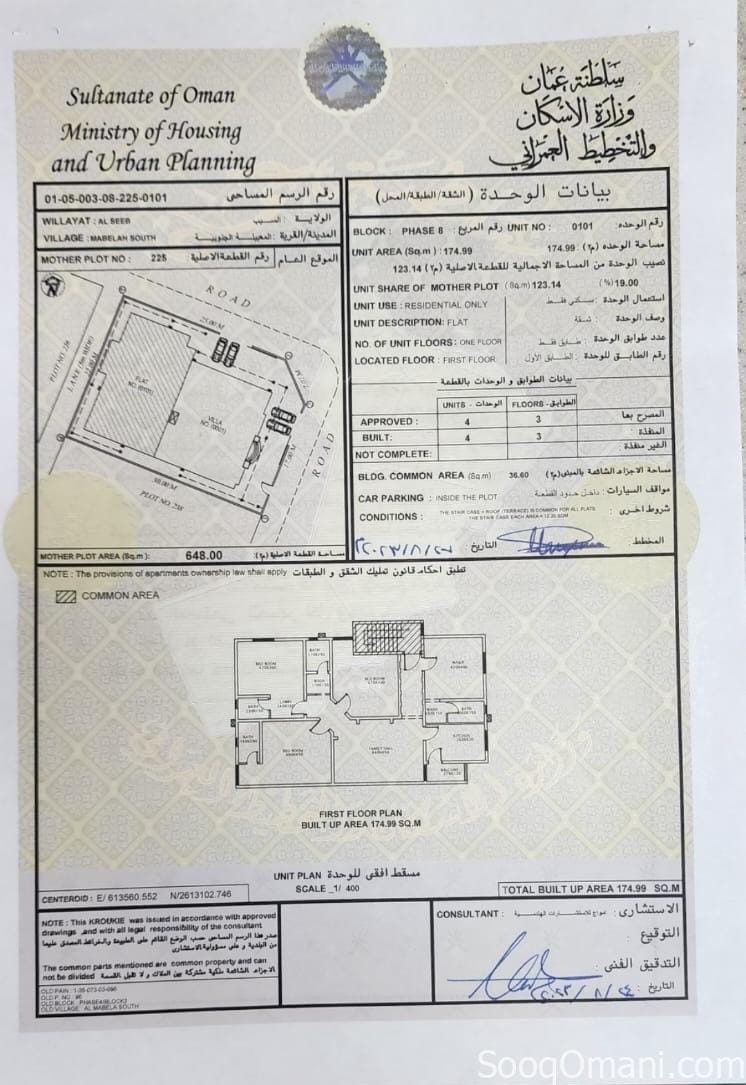 Sultanate of Oman
Ministry of Housing
and Urban Planning
سلطنة عمان
وزارة الإسكان
والتخطيط العمراني
01-05-003-08-225-0101 رقم الرسم المساحى
WILLAYAT : AL SEEB الولاية : السيب
VILLAGE : MABELAH SOUTH المدينة/القرية : المعبيلة الجنوبية
MOTHER PLOT NO : 225 رقم القطعة الاصلية الموقع العام
ROAD
25.00 M
PLOT NO. 226
LANE
FLAT
NO. (0101)
VILLA
ROAD
PLOT NO. 238
MOTHER PLOT AREA (Sq.m) : 648.00 مساحة القطعة الاصلية (م٢):
بيانات الوحدة (الشقة/الطبقة/المحل)
BLOCK : PHASE 8 رقم المربع : UNIT NO : 0101 رقم الوحدة:
UNIT AREA (Sq.m) : 174.99 174.99 مساحة الوحدة (م٢) :
نصيب الوحدة من المساحة الاجمالية للقطعة الاصلية (م٢) 123.14
UNIT SHARE OF MOTHER PLOT (Sq.m) 123.14 (%) 19.00
UNIT USE : RESIDENTIAL ONLY استعمال الوحدة : سكني فقط
UNIT DESCRIPTION: FLAT وصف الوحدة : شقة
NO. OF UNIT FLOORS: ONE FLOOR عدد طوابق الوحدة : طابق فقط
LOCATED FLOOR : FIRST FLOOR رقم الطابق للوحدة : الطابق الأول
بيانات الطوابق و الوحدات بالقطعة
UNITS - الوحدات FLOORS - الطوابق
APPROVED : 4 3 المصرح بها
BUILT: 4 3 المنفذة :
NOT COMPLETE: الغير منفذة :
BLDG. COMMON AREA (Sq.m) 36.60 مساحة الاجزاء الشائعة بالمبنى (م٢)
CAR PARKING : INSIDE THE PLOT مواقف السيارات : داخل حدود القطعة
CONDITIONS : THE STAIR CASE + ROOF (TERRACE) IS COMMON FOR ALL FLATS شروط اخرى :
THE STAIR CASE EACH AREA =
المخطط التاريخ :
NOTE : The provisions of apartments ownership law shall apply تطبق احكام قانون تمليك الشقق و الطبقات
COMMON AREA
BED ROOM
BATH
BED ROOM
MAID
LOBBY
BATH
BATH
BED ROOM
FAMILY HALL
KITCHEN
BALCONY
FIRST FLOOR PLAN
BUILT UP AREA 174.99 SQ.M
UNIT PLAN مسقط افقى للوحدة
SCALE _1/ 400
CENTEROID : E/ 613560.552 N/2613102.746
TOTAL BUILT UP AREA 174.99 SQ.M
NOTE : This KROUKIE was issued in accordance with approved
drawings ,and with all legal responsibility of the consultant
صدر هذا الرسم المساحى حسب الوضع القائم على الطبيعة والخرائط المصدق عليها
من البلدية و على مسؤولية الاستشاري
The common parts mentioned are common property and can
not be divided الاجزاء الشائعة ملكية مشتركة بين الملاك و لا تقبل القسمة
OLD PAIN : 1-05-073-03-096
OLD P. NO : 96
OLD BLOCK : PHASE4/BLOCK3
OLD VILLAGE : AL MABELA SOUTH
CONSULTANT : امواج للاستشارات الهندسية الاستشارى :
التوقيع :
التدقيق الفنى :
التاريخ : ٢٠٢٣/٨/٢٤
SooqOmani.com